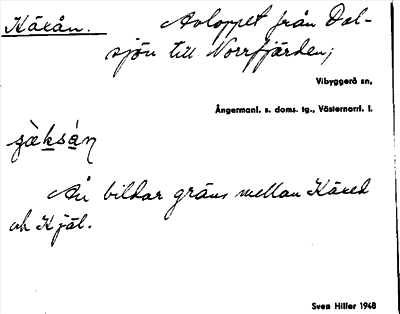 Käxån. Avloppet från Dal-
sjön till Norrfjärden;
Vibyggerå sn,
Ångermanl. s. doms. tg., Västernorrl. l.
Ån bildar gräns mellan Käxed
och Kjäl.
Sven Hiller 1948